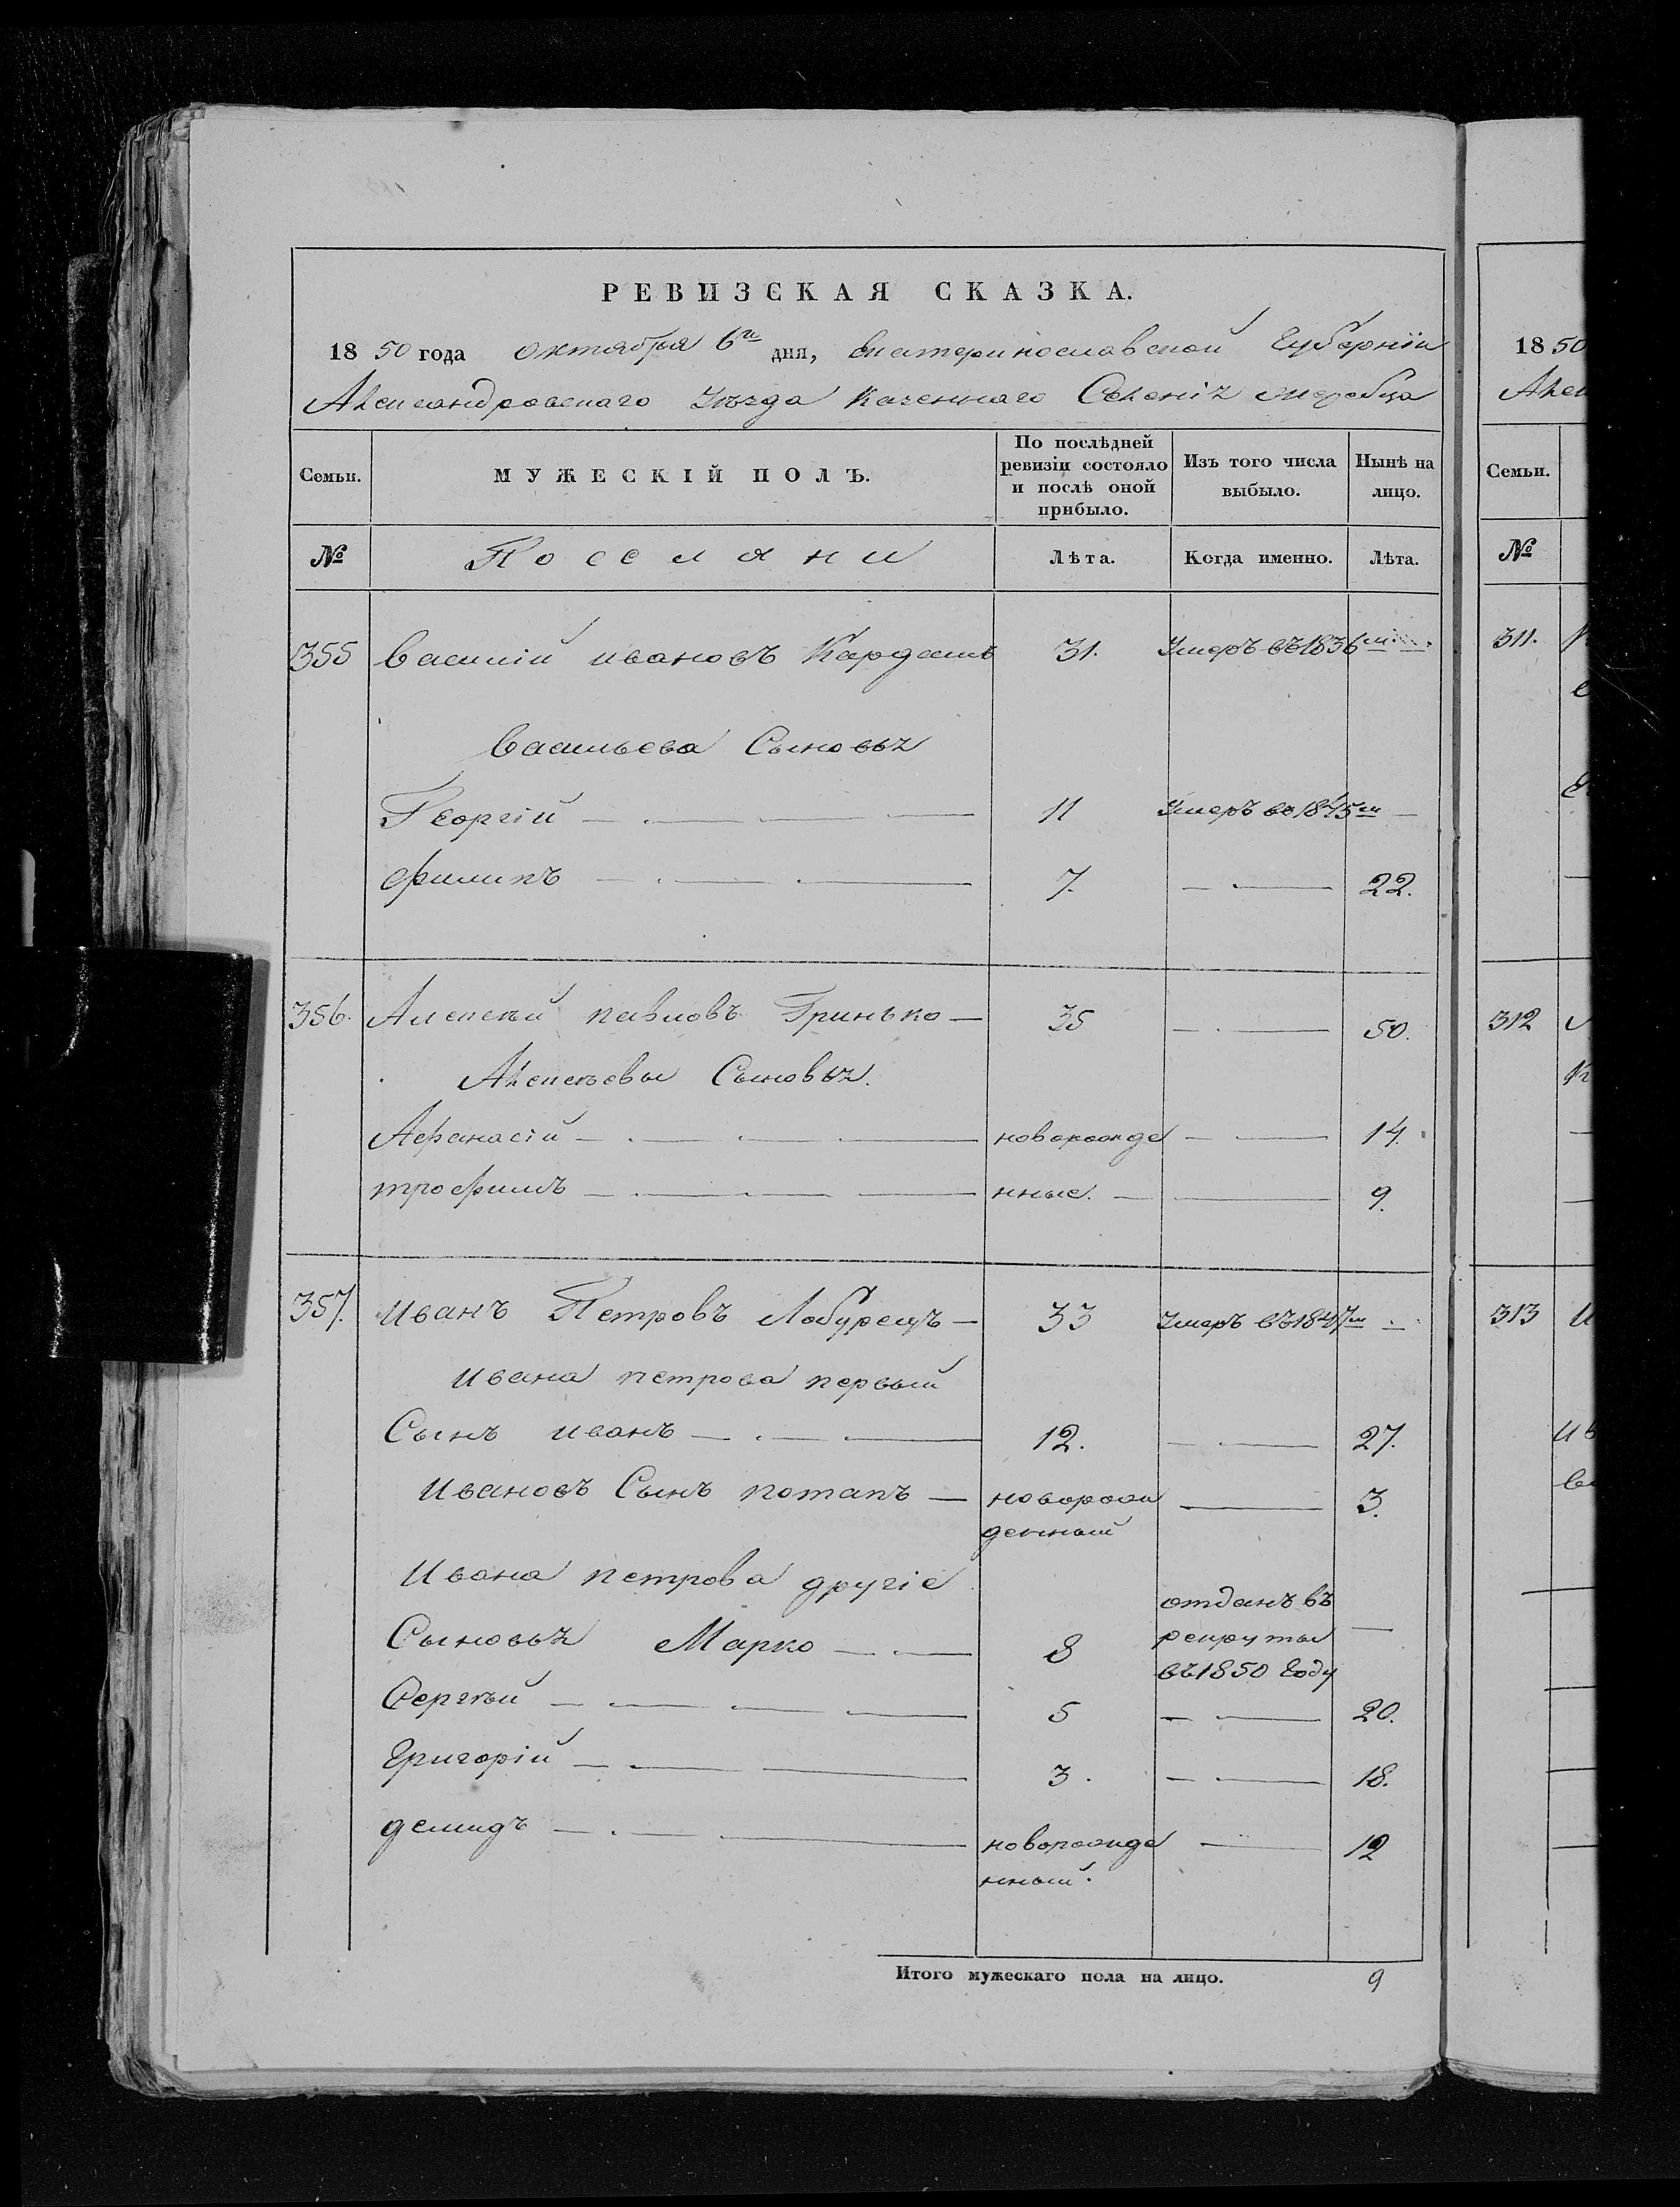 РЕВИЗСКАЯ СКАЗКА.
1850 года октября 6го дня, Екатеринославской Губерніи
Александровскаго Уѣзда Казеннаго Селенія Жеребца
Семьи. МУЖЕСКІЙ ПОЛЪ. По послѣдней ревизіи состояло и послѣ оной прибыло. Изъ того числа выбыло. Нынѣ на лицо.
№ Поселяни Лѣта. Когда именно. Лѣта.
355 Василій ивановъ Кардашъ 31. Умеръ въ 1836м
Васильева Сыновья
Георгій 11 Умеръ въ 1845м
филипъ 7. 22.
356. Алексѣй павловъ Гринько 35 50.
Алексѣевы Сыновья.
Афанасій новорожде 14.
трофимъ нные. 9.
357. Иванъ Петровъ Лобурецъ 33 Умеръ въ 1847м
Ивана петрова первый
Сынъ иванъ 12. 27.
Ивановъ Сынъ потапъ новорож 3.
денный
Ивана петрова другіе
отданъ въ
Сыновья Марко 8 рекруты
въ 1850 Году
Сергѣй 5 20.
Григорій 3. 18.
демидъ новорожде 12
нный.
Итого мужескаго пола на лицо. 9
1850
Алек
Семьи.
№
311.
312
313